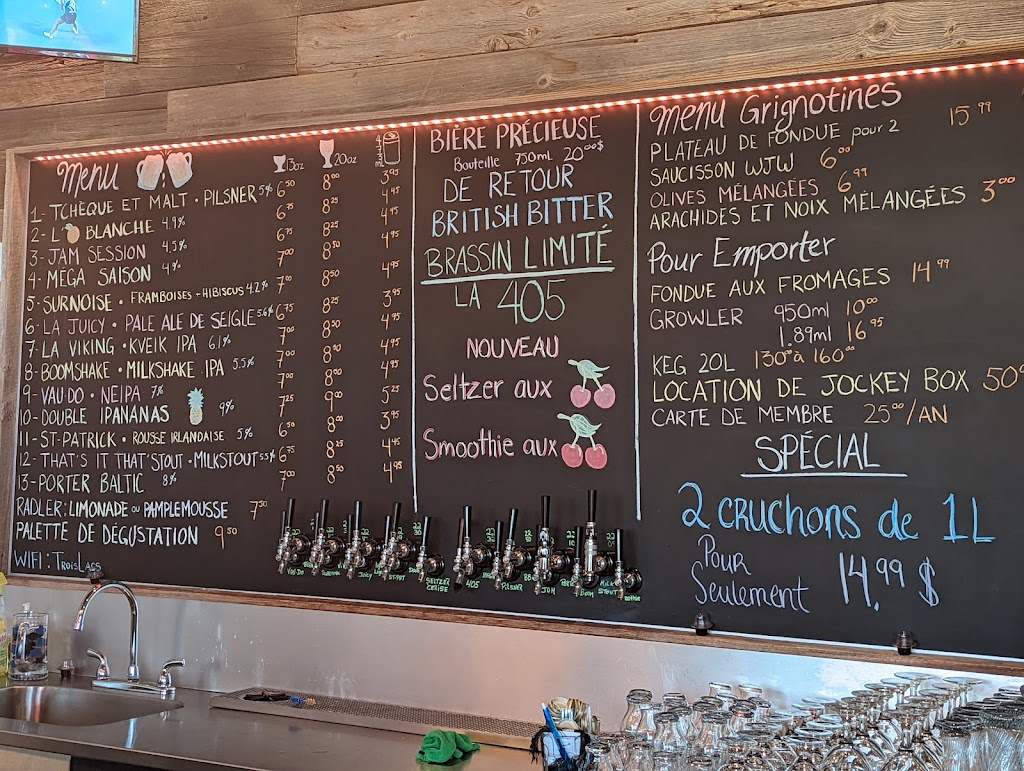 Menu 13oz 20oz 473ml
1- TCHÈQUE ET MALT • PILSNER 5% 6.50 8.00 3.95
2- L' BLANCHE 4.9% 6.75 8.25 4.95
3- JAM SESSION 4.5% 6.75 8.25 4.95
4- MÉGA SAISON 4% 7.00 8.50 4.95
5- SURNOISE • FRAMBOISES - HIBISCUS 4.2% 7.00 8.50 4.95
6- LA JUICY • PALE ALE DE SEIGLE 5.6% 6.75 8.25 3.95
7- LA VIKING • KVEIK IPA 6.1% 7.00 8.50 4.95
8- BOOMSHAKE • MILKSHAKE IPA 5.5% 7.00 8.50 4.95
9- VAU-DO • NEIPA 7% 7.00 8.50 4.95
10- DOUBLE IPANANAS 9% 7.25 9.00 5.25
11- ST-PATRICK • ROUSSE IRLANDAISE 5% 6.50 8.00 3.95
12- THAT'S IT THAT'STOUT • MILKSTOUT 5.5% 6.75 8.25 4.45
13- PORTER BALTIC 8% 7.00 8.50 4.95
RADLER: LIMONADE OU PAMPLEMOUSSE 7.50
PALETTE DE DÉGUSTATION 9.50
WIFI: TROISLACS
BIÈRE PRÉCIEUSE
Bouteille 750ml 20.00$
DE RETOUR
BRITISH BITTER
BRASSIN LIMITÉ
LA 405
NOUVEAU
Seltzer aux
Smoothie aux
Menu Grignotines
PLATEAU DE FONDUE pour 2 15.99
SAUCISSON WJW 6.00
OLIVES MÉLANGÉES 6.99
ARACHIDES ET NOIX MÉLANGÉES 3.00
Pour Emporter
FONDUE AUX FROMAGES 14.99
GROWLER 950ml 10.00
1.89ml 16.95
KEG 20L 130.00 à 160.00
LOCATION DE JOCKEY BOX 50
CARTE DE MEMBRE 25.00/AN
SPÉCIAL
2 cruchons de 1L
Pour
Seulement 14,99 $
VAU-DO
JUICY
ST-PAT
SELTZER
CERISE
405
PILSNER
JAM
BOOM
MILK
STOUT